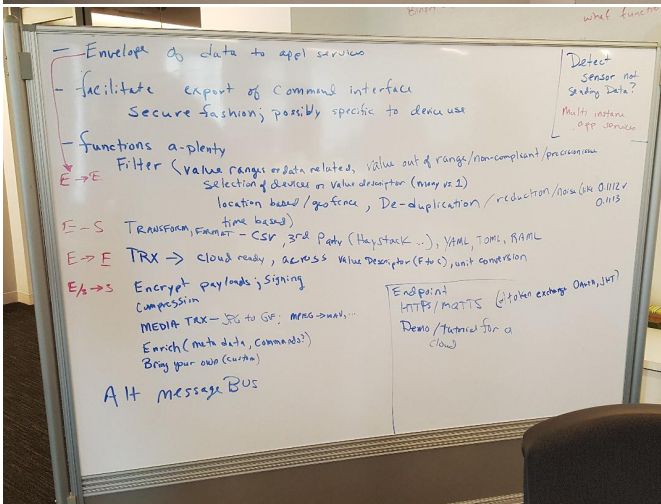 what functio
- Envelope of data to appl services
- facilitate export of command interface
secure fashion; possibly specific to device use
- functions a-plenty
Filter (value ranges or data related, value out of range/non-compliant/precision
E → E
selection of devices or value descriptor (many vs 1)
location based/geofence, De-duplication/reduction/noise (like 0.1112 v
0.1113
time based)
E - S TRANSFORM, FORMAT - CSV, 3rd Party (Haystack ...), YAML, TOML, RAML
E → E TRX → cloud ready, across value Descriptor (F to C), unit conversion
E/S → S Encrypt payloads; Signing
Compression
MEDIA TRX - JPG to GIF; MPEG → WAV, ...
Enrich (meta data, commands?)
Bring your own (custom)
Alt message Bus
Detect
sensor not
sending Data?
Multi instance
app services
Endpoint
HTTPS/MQTTS (token exchange OAUTH, JWT)
Demo/tutorial for a
cloud